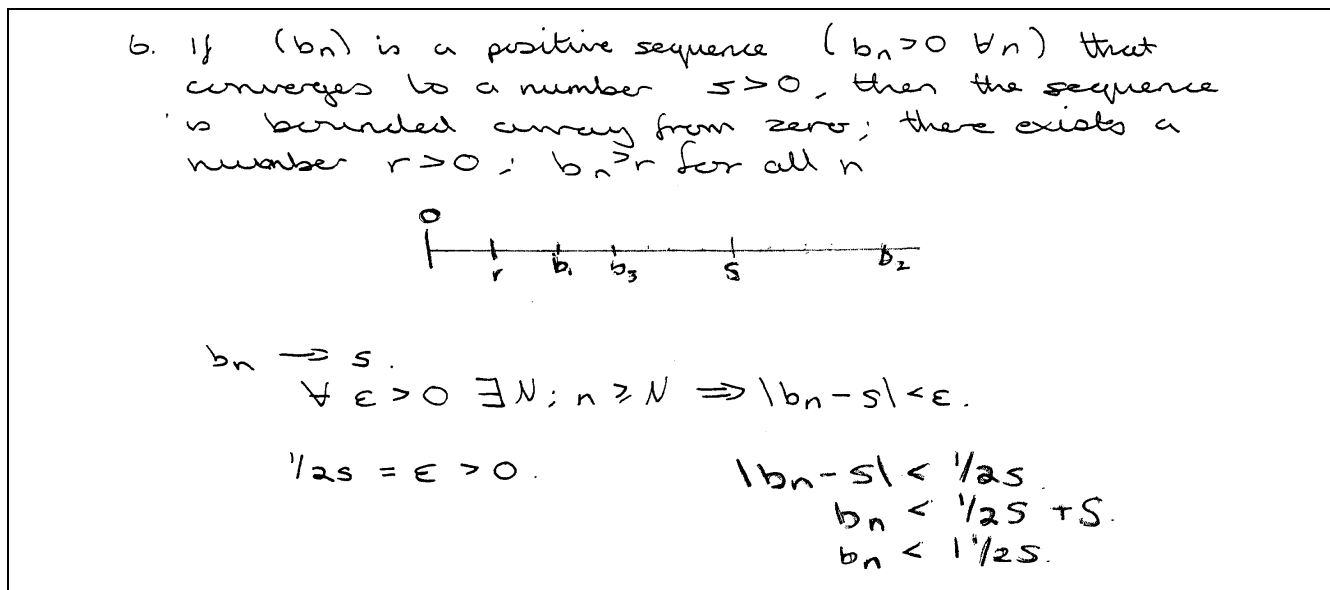 6. If (bn) is a positive sequence (bn>0 ∀n) that
converges to a number s>0, then the sequence
is bounded away from zero; there exists a
number r>0; bn≥r for all n
0
r b1 b3 s b2
bn → s.
∀ ε>0 ∃N; n≥N ⇒ |bn-s|<ε.
1/2s = ε > 0. |bn-s| < 1/2s.
bn < 1/2s + s.
bn < 1 1/2s.